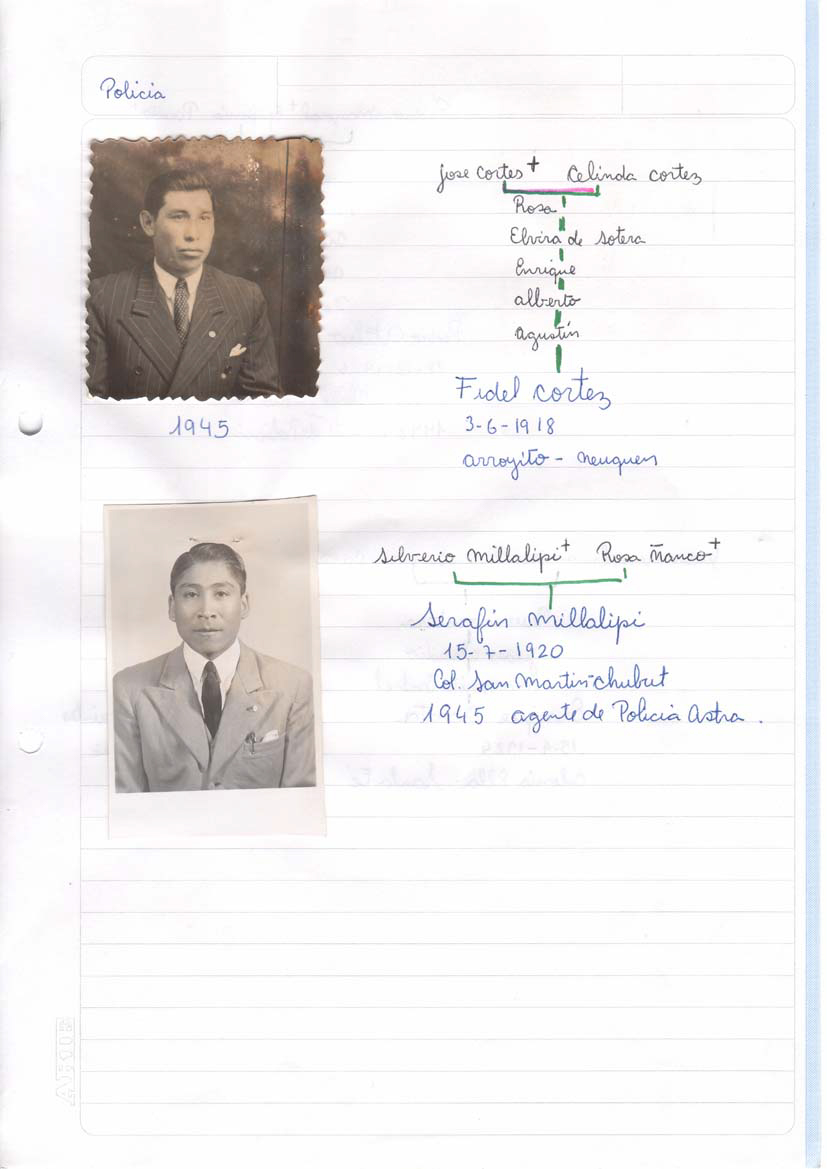 Policia
jose cortes + Celinda cortez
Rosa
Elvira de sotera
Enrique
alberto
agustín
Fidel cortez
1945
3-6-1918
arroyito - neuquen
silverio millalipi + Rosa ñanco +
Serafin millalipi
15-7-1920
Col. San Martin-chubut
1945 agente de Policia Astra.